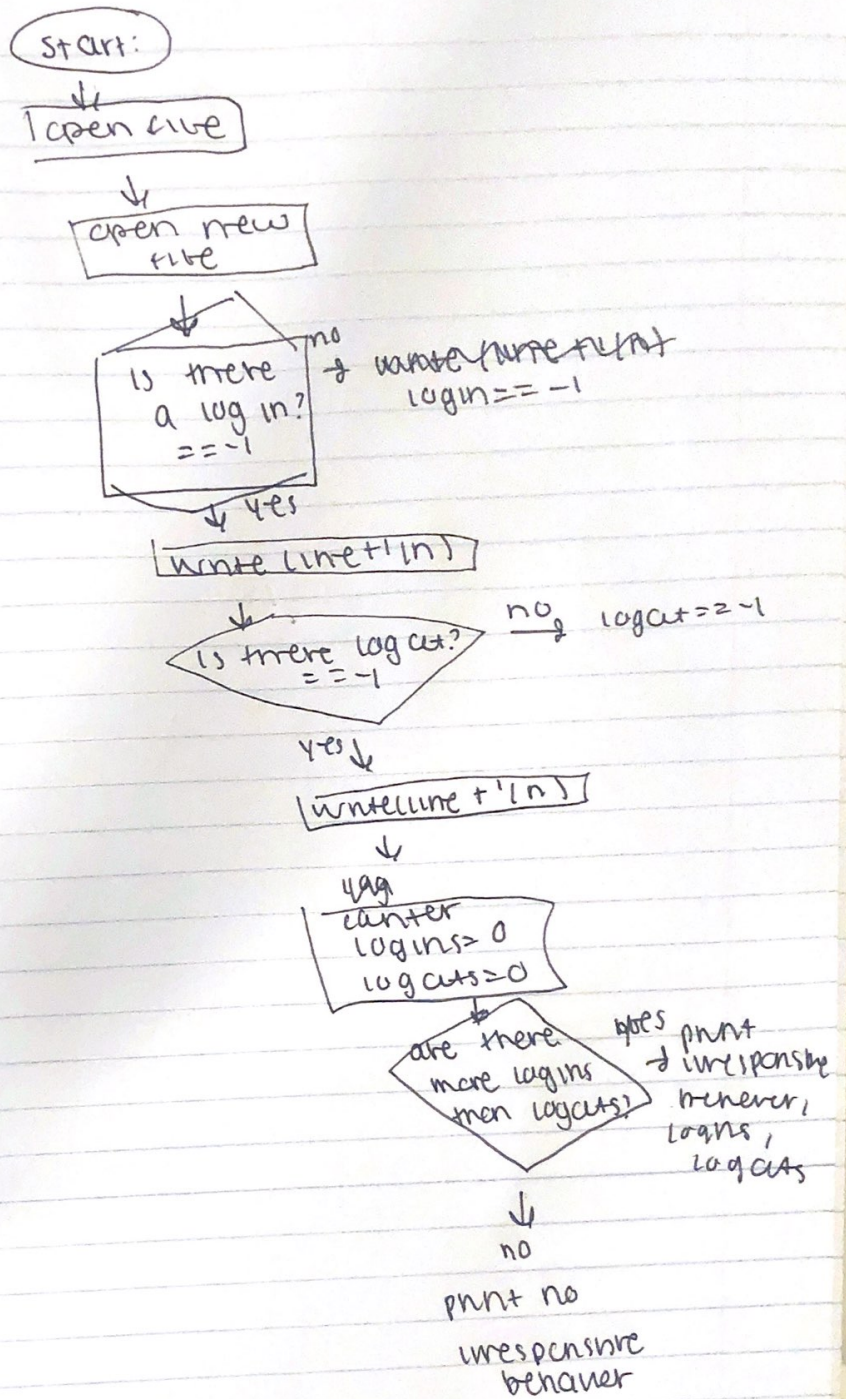 start:
open file
open new
file
is there
a log in?
== -1
no
login == -1
yes
write(line+'\n')
is there logout?
== -1
no
logout == -1
yes
write(line + '\n')
counter
logins = 0
logouts = 0
are there
more logins
than logouts?
yes
print
irresponsible
behaver,
logins,
logouts
no
print no
irresponsible
behaver